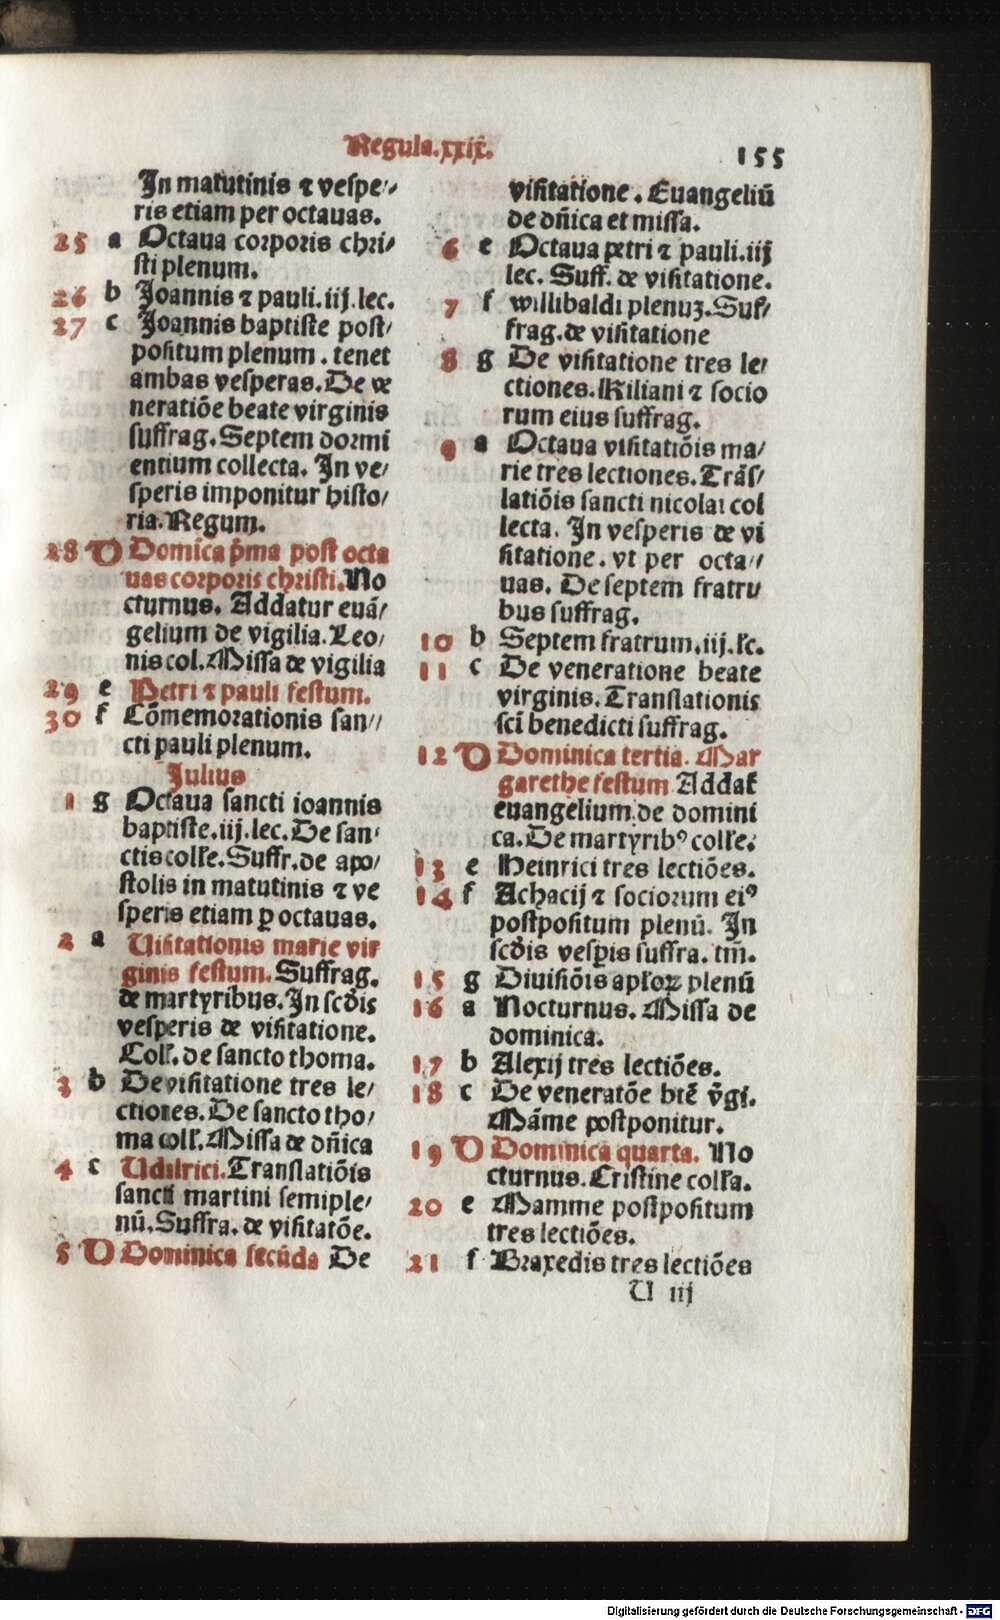 Regula.xxix.
155
In matutinis ⁊ vespe//
ris etiam per octauas.
25 a Octaua corporis chri/
sti plenum.
26 b Joannis ⁊ pauli.iij.lec.
27 c Joannis baptiste post/
positum plenum. tenet
ambas vesperas.De ve
neratiōe beate virginis
suffrag.Septem dormi
entium collecta. In ve/
speris imponitur histo/
ria.Regum.
28 D Domīca p̄ma post octa
uas corporis christi.No
cturnus. Addatur euā/
gelium de vigilia.Leo/
nis col.Missa de vigilia
29 e Petri ⁊ pauli festum.
30 f Cōmemorationis san//
cti pauli plenum.
Julius
1 g Octaua sancti ioannis
baptiste.iij.lec.De san/
ctis colle.Suffr.de apo/
stolis in matutinis ⁊ ve
speris etiam ꝑ octauas.
2 a Uisitationis marie vir
ginis festum.Suffrag.
de martyribus.In scd̄is
vesperis de visitatione.
Coll.de sancto thoma.
3 b De visitatione tres le/
ctiones.De sancto tho/
ma coll.Missa de dn̄ica
4 c Udalrici.Translatiōis
sancti martini semiple/
nū.Suffra.de visitatōe.
5 D Dominica secūda De
visitatione. Euangeliū
de dn̄ica et missa.
6 e Octaua petri ⁊ pauli.iij
lec. Suff. de visitatione.
7 f willibaldi plenuꝫ.Suf/
frag.de visitatione
8 g De visitatione tres le/
ctiones.Kiliani ⁊ socio
rum eius suffrag.
9 a Octaua visitatiōis ma/
rie tres lectiones.Trās/
latiōis sancti nicolai col
lecta. In vesperis de vi
sitatione. vt per octa//
uas. De septem fratri/
bus suffrag.
10 b Septem fratrum.iij.lc.
11 c De veneratione beate
virginis.Translationis
sci̅ benedicti suffrag.
12 D Dominica tertia. Mar
garethe festum Addat̄
euangelium.de domini
ca.De martyribꝰ colle.
13 e Heinrici tres lectiōes.
14 f Achacij ⁊ sociorum eiꝰ
postpositum plenū. In
scd̄is vesp̱is suffra. tm̄.
15 g Diuisiōis apl̄oꝝ plenū
16 a Nocturnus. Missa de
dominica.
17 b Alexij tres lectiōes.
18 c De veneratōe btē v̄gī.
Māme postponitur.
19 D Dominica quarta. No
cturnus. Cristine coll̄a.
20 e Mamme postpositum
tres lectiōes.
21 f Praxedis tres lectiōes
U iij
Digitalisierung gefördert durch die Deutsche Forschungsgemeinschaft - DFG